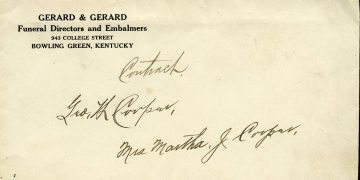 GERARD & GERARD
Funeral Directors and Embalmers
943 COLLEGE STREET
BOWLING GREEN, KENTUCKY
Contract.
Geo. H Cooper,
Mrs Martha, J Cooper,